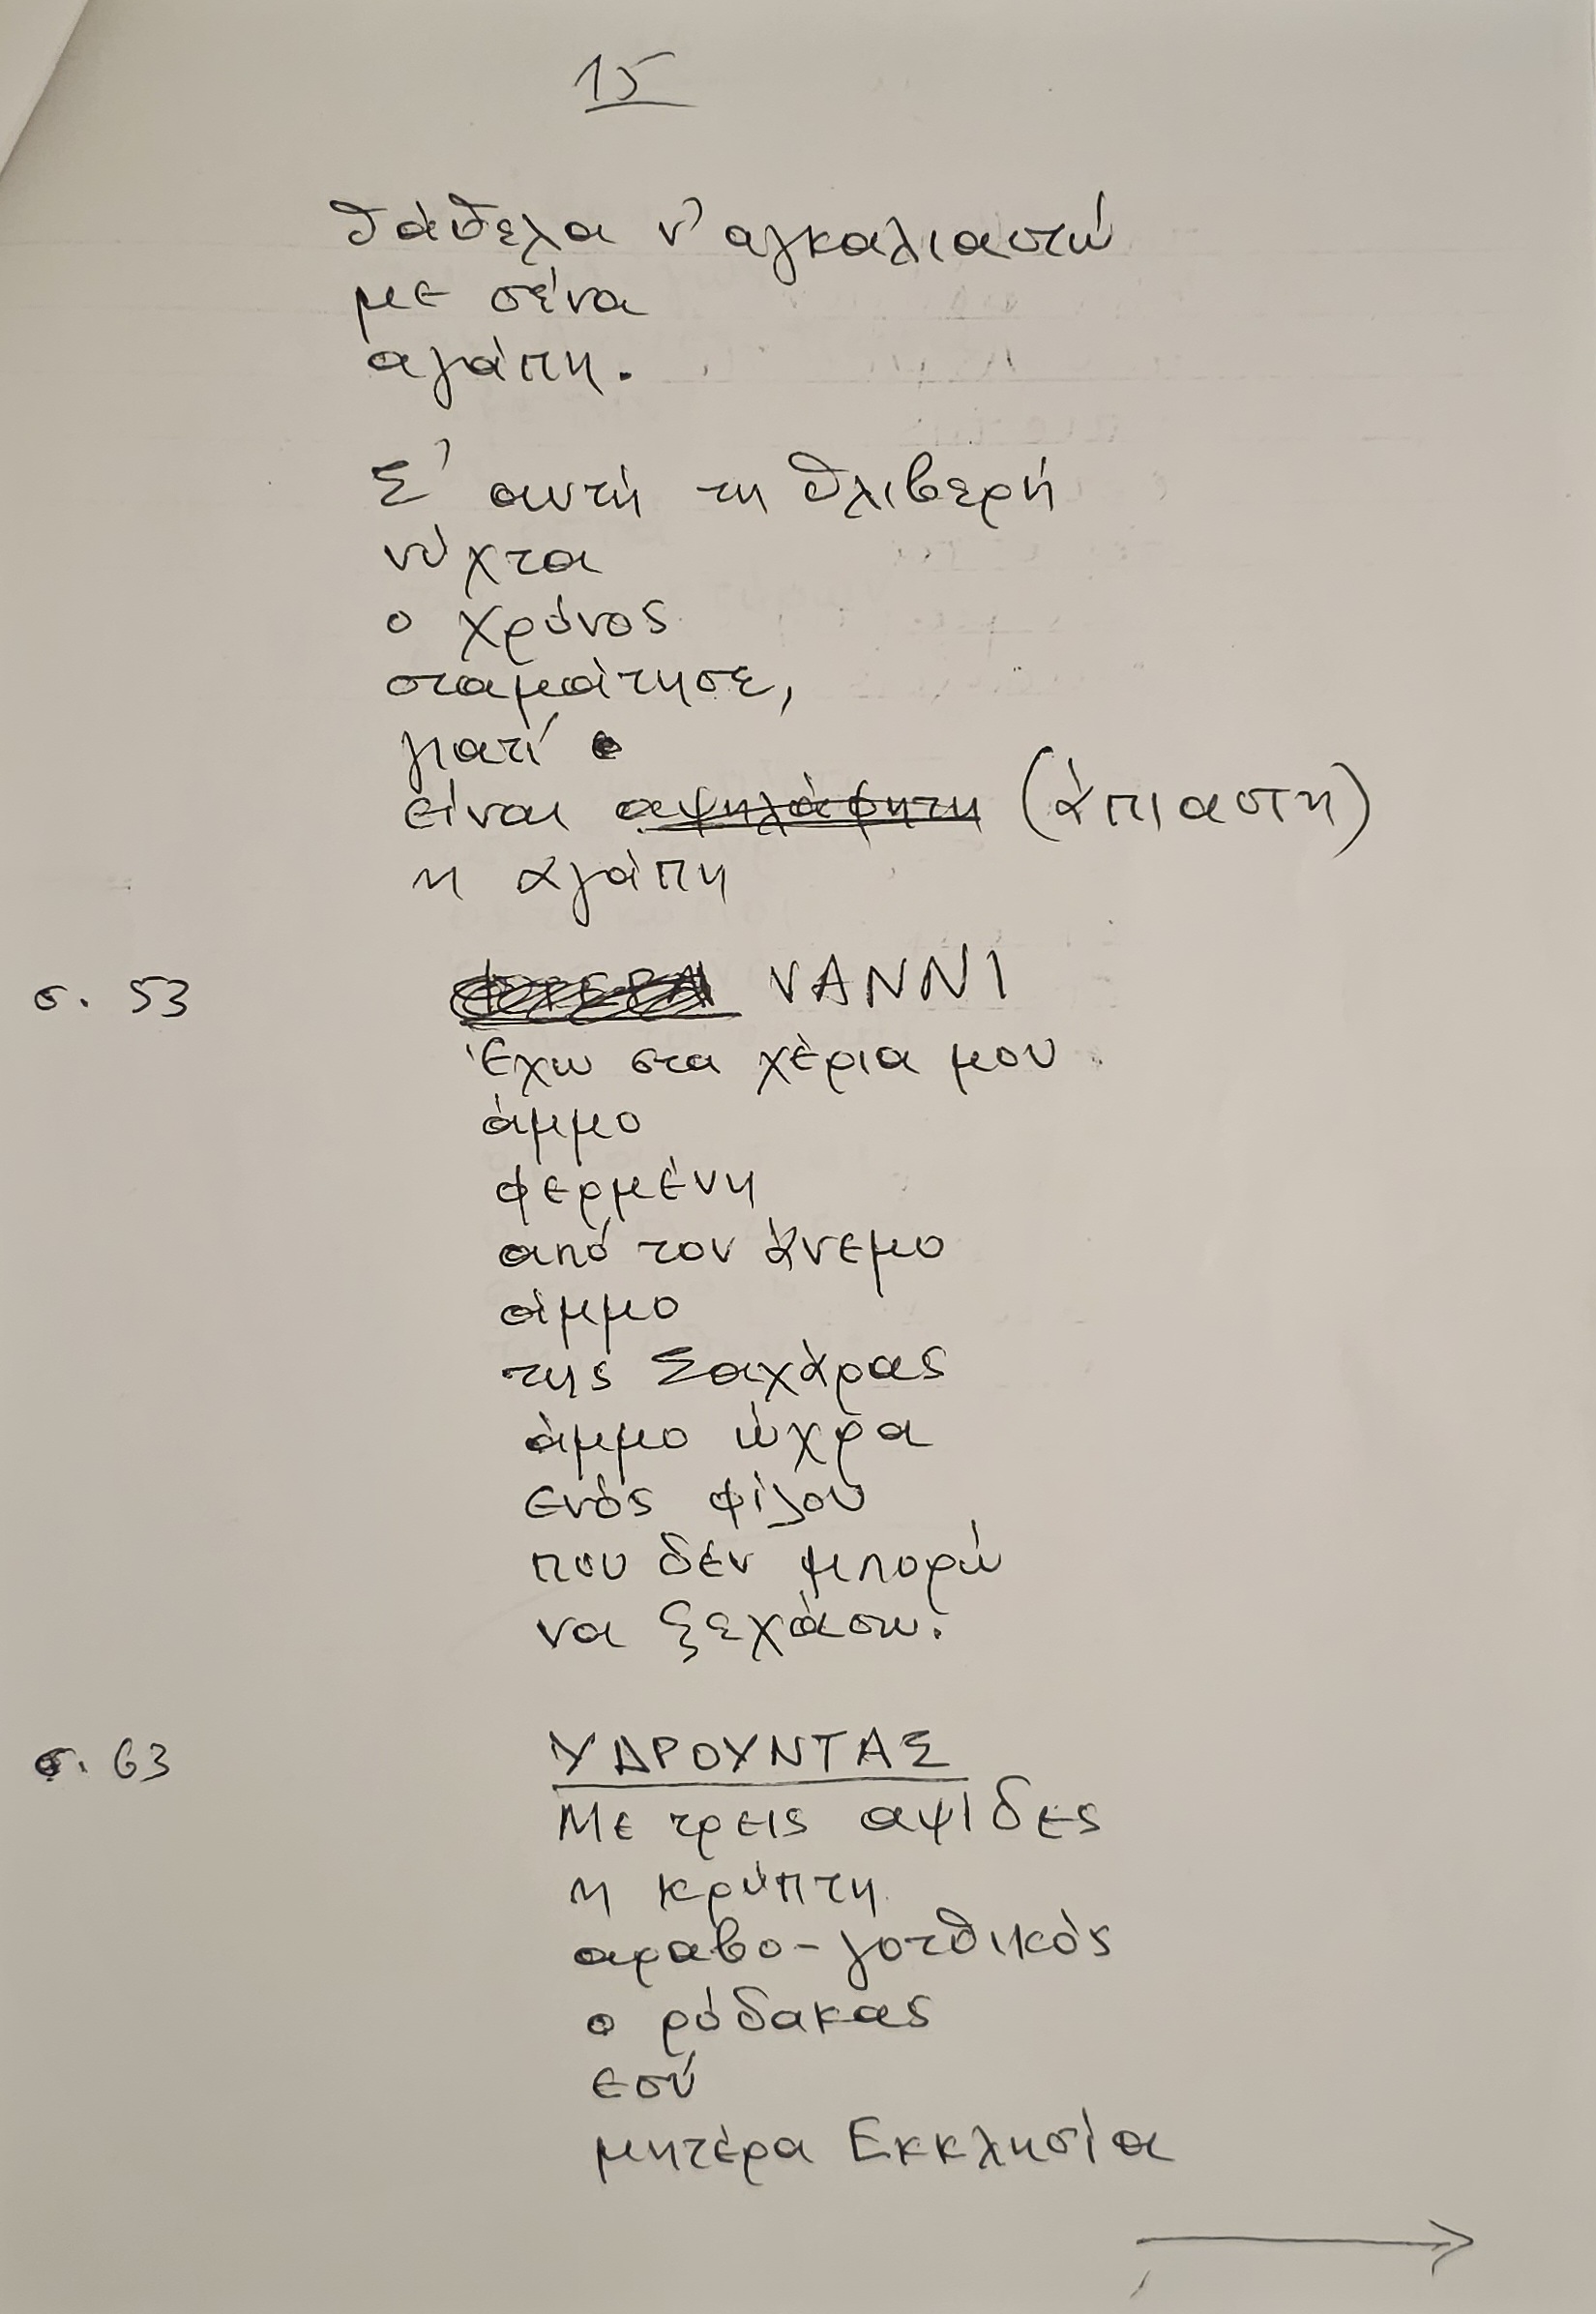 15
θάθελα ν' αγκαλιαστώ
με σένα
αγάπη.
Σ' αυτή τη θλιβερή
νύχτα
ο χρόνος
σταμάτησε,
γιατί
είναι αψηλάφητη (άπιαστη)
η αγάπη
σ. 53 VANNI
Έχω στα χέρια μου
άμμο
φερμένη
από τον άνεμο
άμμο
της Σαχάρας
άμμο ώχρα
ενός φίλου
που δέν μπορώ
να ξεχάσω.
σ. 63 ΥΔΡΟΥΝΤΑΣ
Με τρεις αψίδες
η κρύπτη
αραβο-γοτθικός
ο ρόδακας
εσύ
μητέρα Εκκλησία